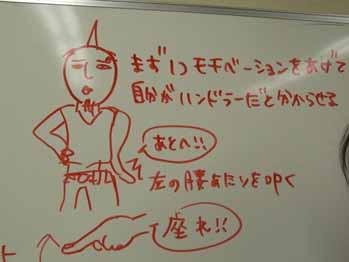 まず1つモチベーションをあげて
自分がハンドラーだと分からせる
あとへ!!
左の腰あたりを叩く
座れ!!